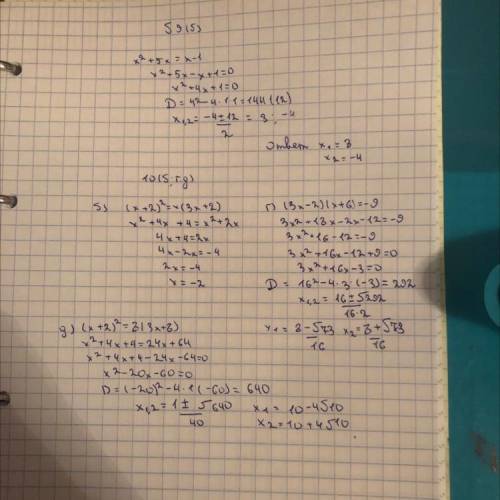 59(5)
x²+5x=x-1
x²+5x-x+1=0
x²+4x+1=0
D=4²-4·1·1=144(12)
x₁,₂=-4±12/2=3; -4
ответ x₁=3
x₂=-4
10(5,г,д)
5) (x+2)²=x(3x+2)
x²+4x+4=x²+2x
4x+4=2x
4x-2x=-4
2x=-4
x=-2
г) (3x-2)(x+6)=-9
3x²+18x-2x-12=-9
3x²+16-12=-9
3x²+16x-12+9=0
3x²+16x-3=0
D=16²-4·3·(-3)=292
x₁,₂=16±√292/16·2
x₁=8-√73/16 x₂=8+√73/16
д) (x+2)²=8(3x+8)
x²+4x+4=24x+64
x²+4x+4-24x-64=0
x²-20x-60=0
D=(-20)²-4·1(-60)=640
x₁,₂=1±√640/40
x₁=10-4√10
x₂=10+4√10